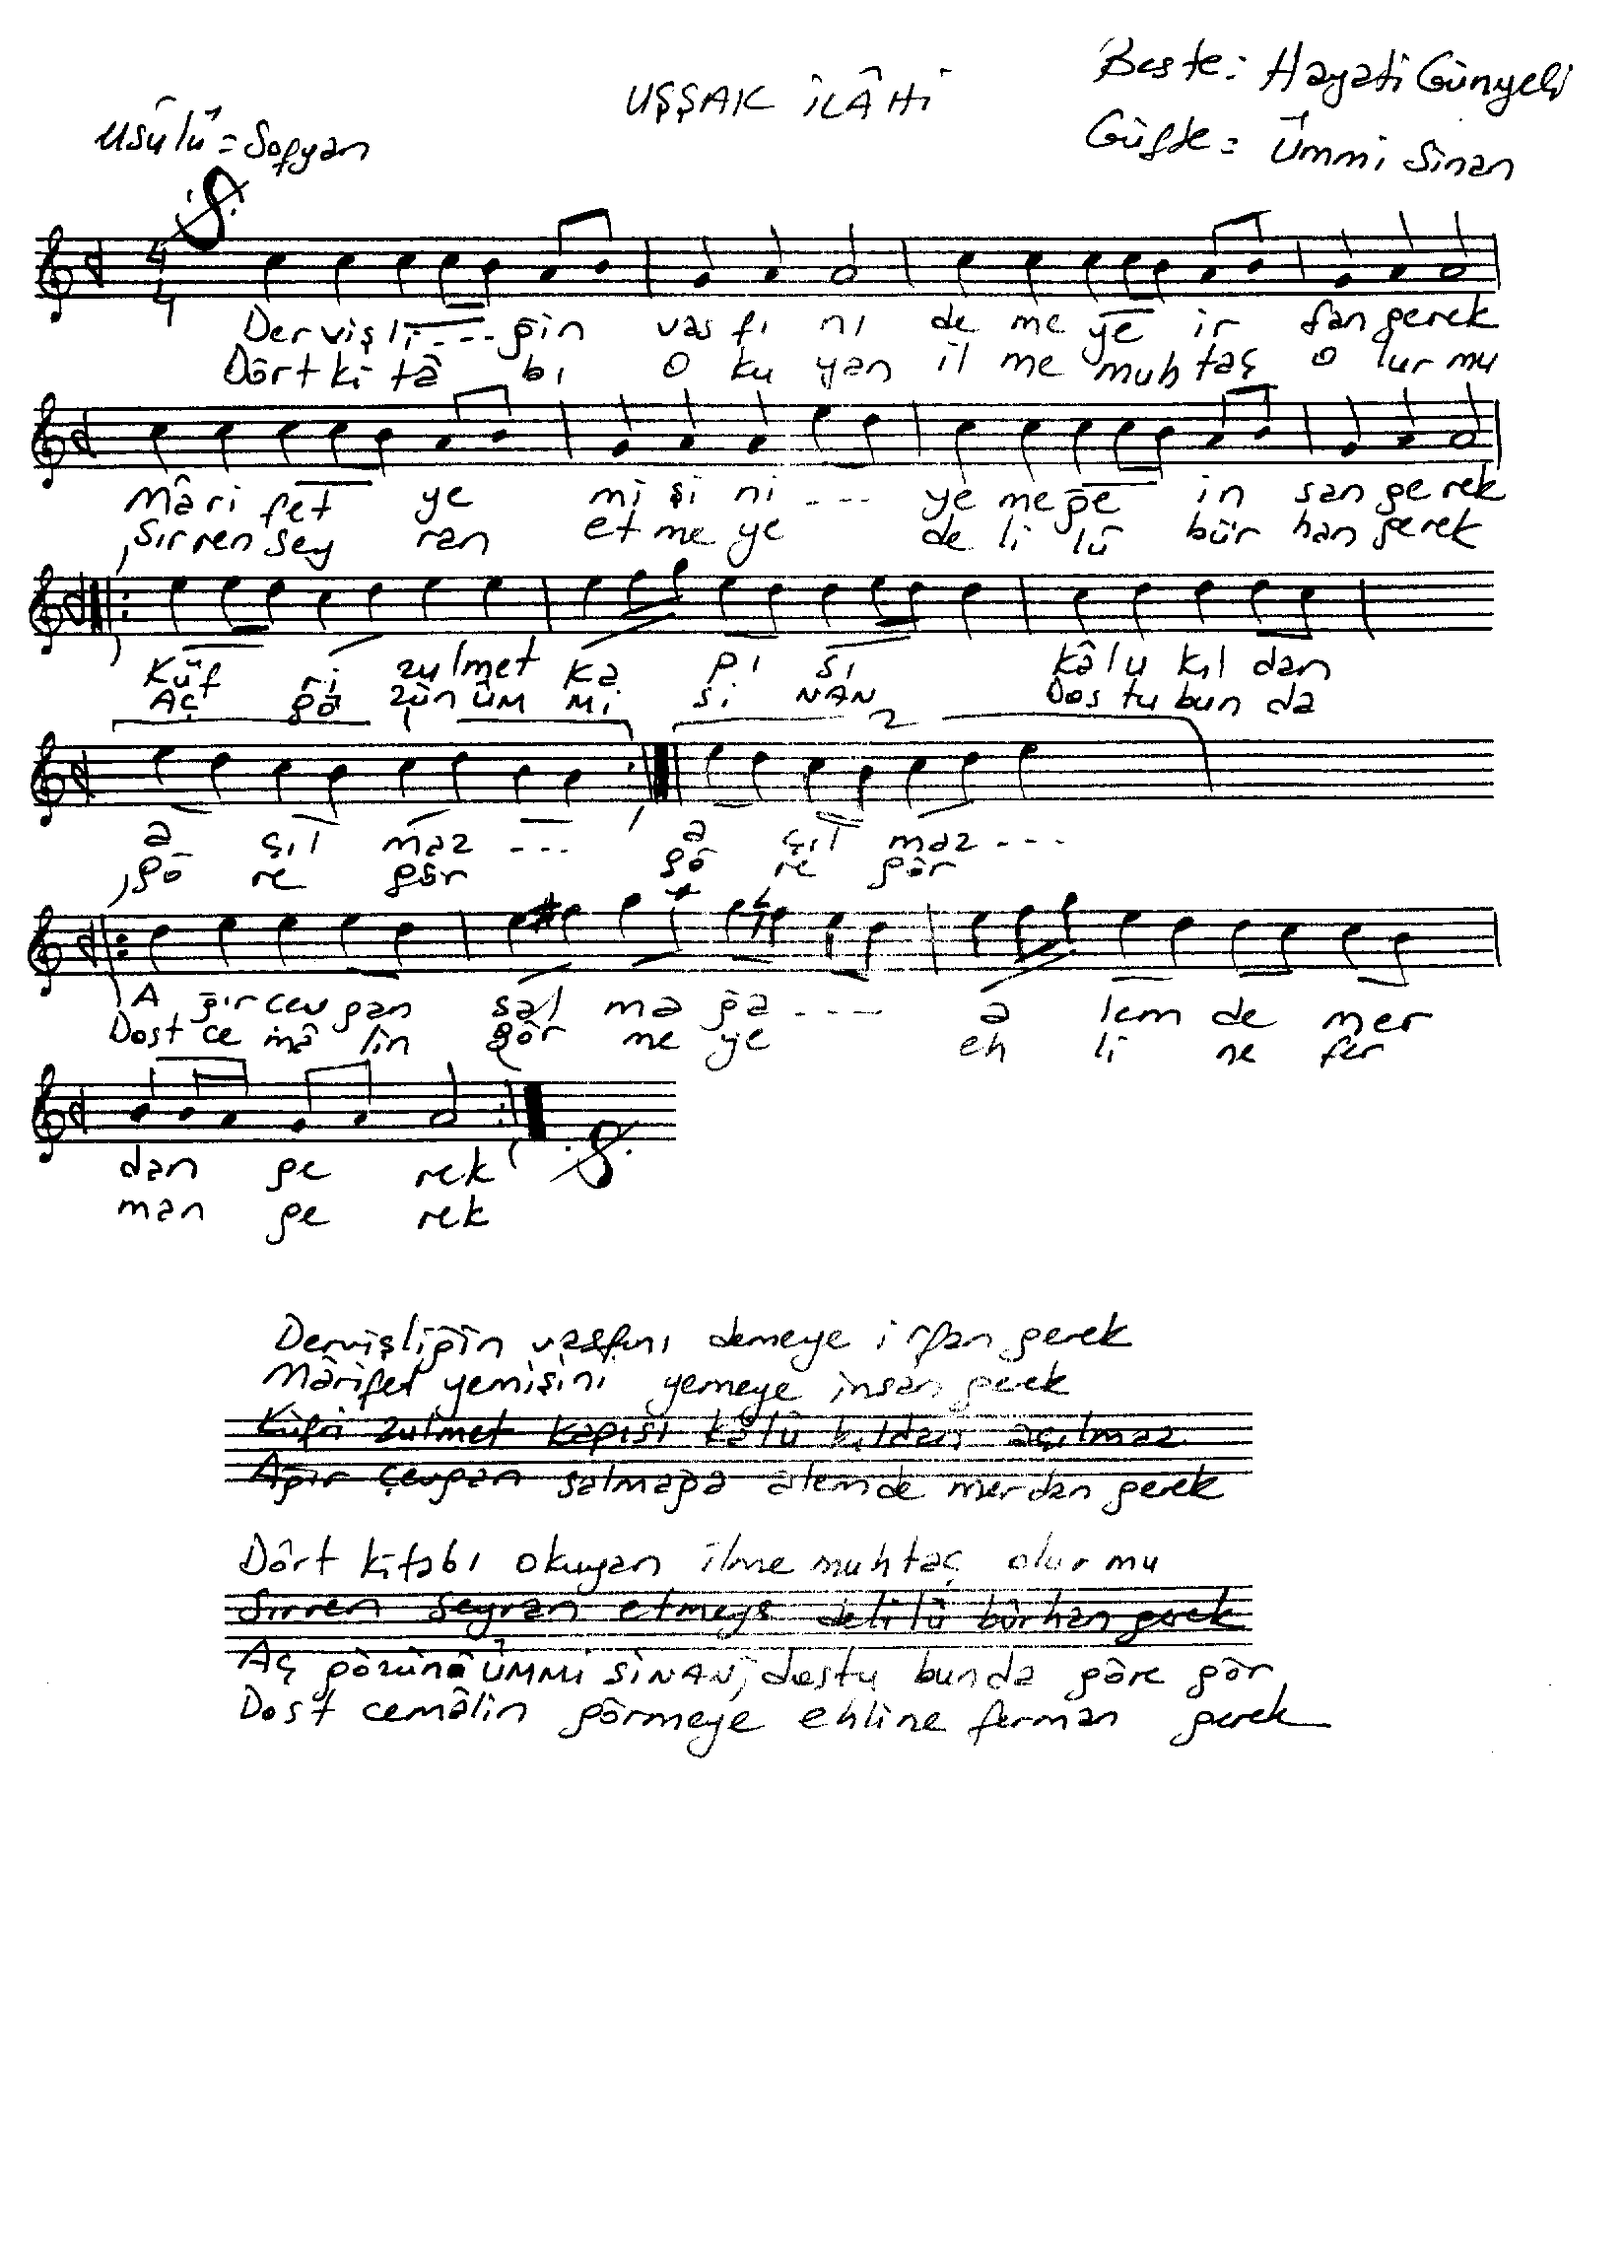 Beste: Hayati Günyeli
UŞŞAK İLÂHİ
Usûlü = Sofyan
Güfte = Ümmi Sinan
4
4
Der viş li --- ğin vas fı nı de me ye ir fan gerek
Dört ki tâ bı o ku yan il me muh taç o lur mu
Mâ ri fet ye mi şi ni --- ye me ğe in san ge rek
Sır ren sey ran et me ye de li lü bür han gerek
Küf ri zulmet ka pı sı kâ lu kıl dan
Aç gö zün üm mi si NAN Dos tu bun da
2
a çıl maz --- a çıl maz ---
gö re gör gö re gör
A ğır cev gan sal ma ğa --- a lem de mer
Dost ce mâ lin gör me ye eh li ne fer
dan ge rek
man ge rek
Dervişliğin vasfını demeye irfan gerek
Mârifet yemişini yemeye insan gerek
Küfri zulmet kapısı kâlû kıldan açılmaz
Ağır çevgan salmağa âlemde merdan gerek
Dört kitabı okuyan ilme muhtaç olur mu
Sırren seyran etmeye delilü bürhan gerek
Aç gözünü ÜMMİ SİNAN, dostu bunda göre gör
Dost cemâlin görmeye ehline ferman gerek